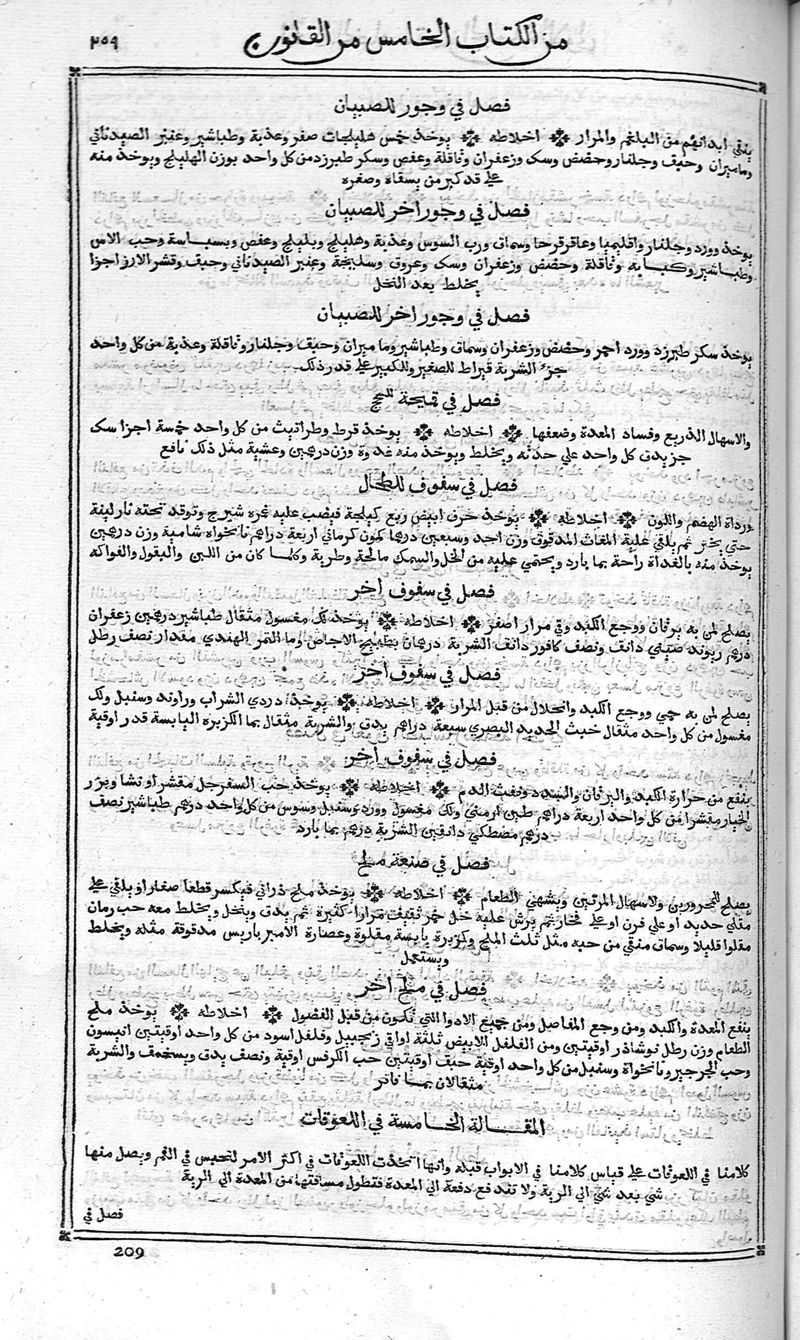 من الكتاب الخامس من القانون
٢٠٩
فصل في وجور للصبيان
ينقي ابدانهم من البلغم والمرار اخلاطه يوخذ خمس هليلجات صفر وعذبة وطباشير وعنبر الصيدناني
وماميران وحبق وجلنار وحضض وسك وزعفران وثاقلة وعفص وسكر طبرزد من كل واحد بوزن الهليلج ويوخذ منه
علي قد كبر من يسقاه وصغره
فصل في وجور اخر للصبيان
يوخذ ورد وجلنار واقليميا وعاقرقرحا وسماق ورب السوس وعذبة وهليلج وبليلج وعفص وبسباسة وحب الاس
وطباشير وكبابه وثاقلة وحضض وزعفران وسك وعروق وسليخة وعنبر الصيدناني وحبق وقشر الارز اجزا
يخلط بعد النخل
فصل في وجور اخر للصبيان
يوخذ سكر طبرزد وورد احمر وحضض وزعفران وسماق وطباشير وماميران وحبق وجلنار وثاقلة وعذبة من كل واحد
جزء الشربة قيراط للصغير وللكبير علي قدر ذلك
فصل في قميحة للمحج
والاسهال الذريع وفساد المعدة وضعفها اخلاطه يوخذ قرط وطراثيث من كل واحد خمسة اجزا سك
جز يدق كل واحد علي حدته ويخلط ويوخذ منه غدوة وزن درهمين وعشية مثل ذلك نافع
فصل في سفوف للطحال
ورداة الهضم واللون اخلاطه يوخذ خرف ابيض ربع كيلجة فيصب عليه غمره شيرج وتوقد تحته نار لينة
حتي يخثر ثم يلقي علية المغاث المدقوق وزن احد وسبعين درهما كون كرماني اربعة دراهم نانخواه شامية وزن درهمين
يوخذ منه بالغداة راحة بما بارد ويحتمي عليه من الخل والسمك مالحة وطرية وكلما كان من اللبن والبقول والفواكه
فصل في سفوف اخر
يصلح لمن به يرقان ووجع الكبد وقي مرار اصفر اخلاطه يوخذ لك مغسول مثقال طباشير درهمين زعفران
درهم ريوند صيني دانق ونصف كافور دانق الشربة درهمان بطبيخ الاجاص وما التمر الهندي مقدار نصف رطل
فصل في سفوف اخر
يصلح لمن به حمي ووجع الكبد وانحلال من قبل المرار اخلاطه يوخذ دردي الشراب وراوند وسنبل ولك
مغسول من كل واحد مثقال خبث الحديد البصري سبعة دراهم يدق والشربة مثقال بما الكزبره اليابسة قدر اوقية
فصل في سفوف اخر
ينفع من حرارة الكبد واليرقان والسدد ونفث الدم اخلاطه يوخذ حب السفرجل مقشرا ونشا وبزر
الخيار مقشرا من كل واحد اربعة دراهم طين ارمني ولك مغسول وورد وسنبل وسوس من كل واحد درهم طباشير نصف
درهم مصطكي دانقين الشربة درهم بما بارد
فصل في صنعة ملح
يصلح للمحرورين ولاسهال المرتين ويشهي الطعام اخلاطه يوخذ ملح ذراني فيكسر قطعا صغارا ويلقي علي
مقلي حديد او علي فرن او علي فخار ثم يرش عليه خل خمر ثقيف مرارا كثيرة ثم يدق وينخل ويخلط معه حب رمان
مقلوا قليلا وسماق منقي من حبه مثل ثلث الملح وكزبرة يابسة مقلوة وعصارة الامبرباريس مدقوقة مثله ويخلط
ويستعمل
فصل في ملح اخر
ينفع المعدة والكبد ومن وجع المفاصل ومن جميع الادوا التي تكون من قبل الفضول اخلاطه يوخذ ملح
الطعام وزن رطل نوشاذر اوقيتين ومن الفلفل الابيض ثلثة اواق زنجبيل وفلفل اسود من كل واحد اوقيتين انيسون
وحب الجرجير ونانخواة وسنبل من كل واحد اوقية حبق اوقيتين حب الكرفس اوقية ونصف يدق ويستف والشربة
مثقالان بما فاتر
المقالة الخامسة في اللعوقات
كلامنا في اللعوقات علي قياس كلامنا في الابواب قبله وانها اتخذت اللعوقات في اكثر الامر لتحبس في الفم ويصل منها
شي بعد شي الي الرية ولا تندفع دفعة الي المعدة فتطول مسافتها من المعدة الي الرية
فصل في
209